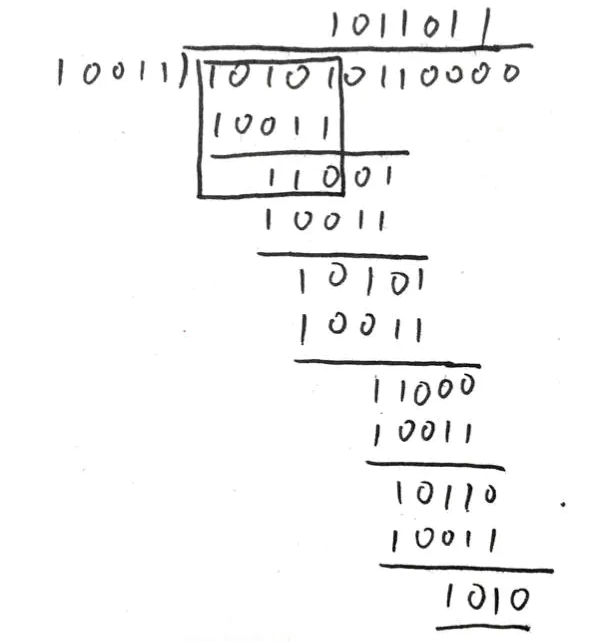 1011011
10011)1010101110000
10011
11001
10011
10101
10011
11000
10011
10110
10011
1010